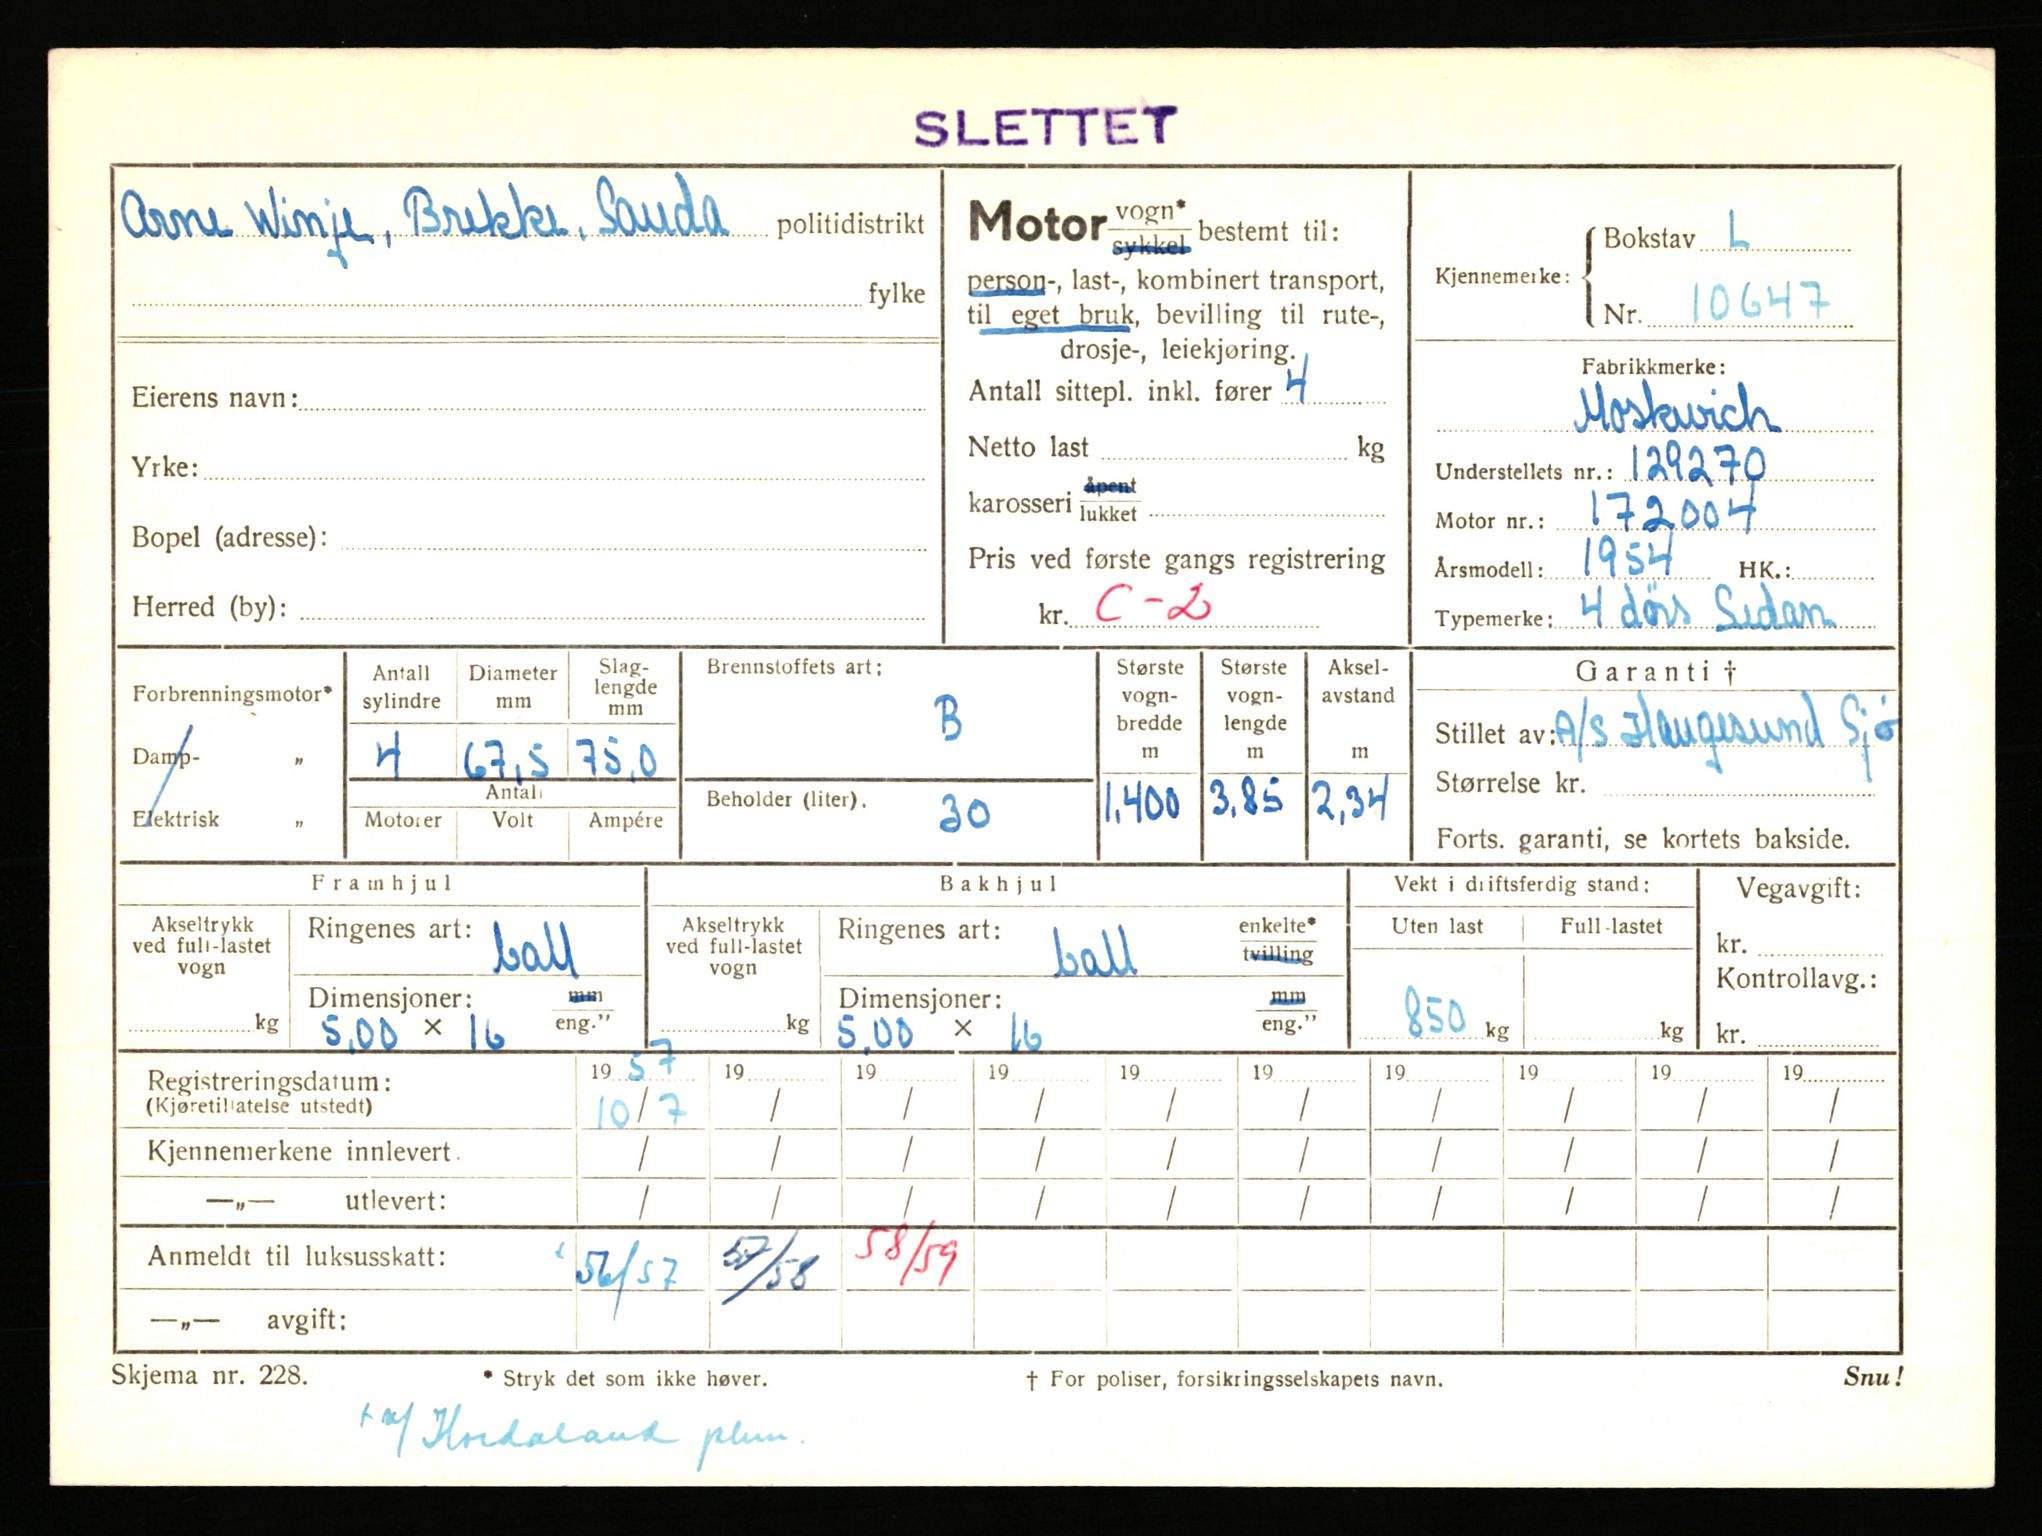 SLETTET
Arne Winje, Brekke, Sauda politidistrikt
fylke
Eierens navn:
Yrke:
Bopel (adresse):
Herred (by):
Motor vogn* sykkel bestemt til:
person-, last-, kombinert transport,
til eget bruk, bevilling til rute-,
drosje-, leiekjøring.
Antall sittepl. inkl. fører 4
Netto last kg
karosseri åpent lukket
Pris ved første gangs registrering
kr. C-2
Kjennemerke: Bokstav L
Nr. 10647
Fabrikkmerke:
Moskwich
Understellets nr.: 129270
Motor nr.: 172004
Årsmodell: 1954 HK.:
Typemerke: 4 dørs Sedan
Forbrenningsmotor*
Damp- „
Elektrisk „
Antall sylindre
Diameter mm
Slag-lengde mm
4 67,5 75,0
Antall
Motorer Volt Ampére
Brennstoffets art:
B
Beholder (liter).
30
Største vogn-bredde m
1,400
Største vogn-lengde m
3,85
Aksel-avstand m
2,34
Garanti †
Stillet av: A/S Haugesund Sjö
Størrelse kr.
Forts. garanti, se kortets bakside.
Framhjul
Akseltrykk ved full-lastet vogn
kg
Ringenes art: ball
Dimensjoner: mm
5,00 × 16 eng.”
Bakhjul
Akseltrykk ved full-lastet vogn
kg
Ringenes art: ball enkelte* tvilling
Dimensjoner: mm
5,00 × 16 eng.”
Vekt i driftsferdig stand:
Uten last Full-lastet
850 kg kg
Vegavgift:
kr.
Kontrollavg.:
kr.
Registreringsdatum: 19 57 19 19 19 19 19 19 19 19 19
(Kjøretillatelse utstedt) 10/7 / / / / / / / / /
Kjennemerkene innlevert. / / / / / / / / / /
—„— utlevert: / / / / / / / / / /
Anmeldt til luksusskatt: 56/57 57/58 58/59
—„— avgift:
Skjema nr. 228. * Stryk det som ikke høver. † For poliser, forsikringsselskapets navn. Snu!
Hordaland